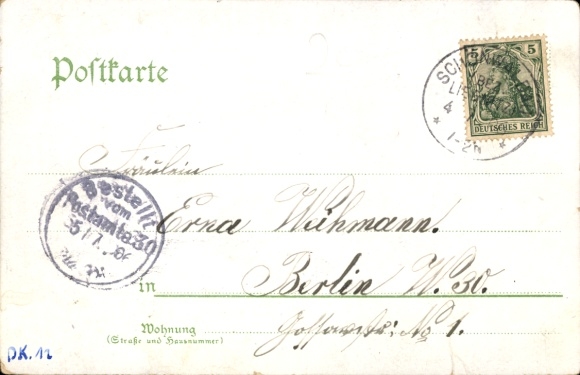 Postkarte
5
DEUTSCHES REICH
SCHÖN
BEZ
LI
4
1-2N
Fräulein
Bestellt
vom
Postamte 30
5/7. 06
Erna Wichmann.
in Berlin W. 30.
Wohnung
(Straße und Hausnummer)
No 1.
DK. 12